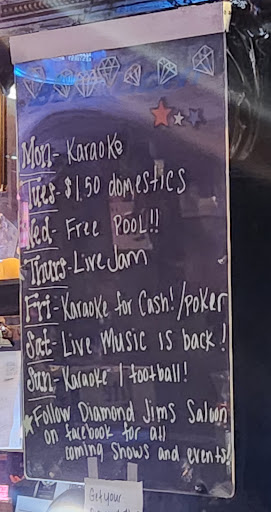 Mon- Karaoke
Tues- $1.50 domestics
Wed- Free Pool!!
Thurs- Live Jam
Fri- Karaoke for Cash! / Poker
Sat- Live Music is back!
Sun- Karaoke / football!
Follow Diamond Jims Saloon
on facebook for all
coming shows and events!
Get your